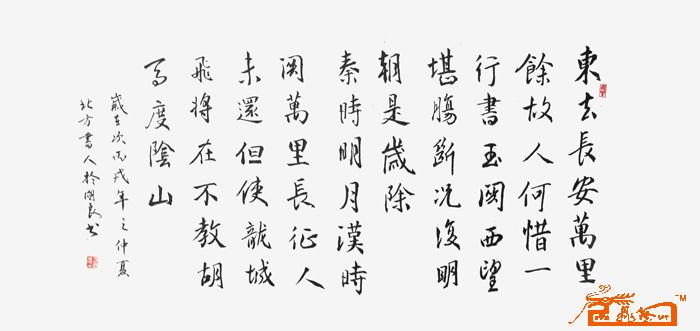 東去長安萬里
餘故人何惜一
行書玉関西望
堪腸斷況復明
朝是歲除
秦時明月漢時
関萬里長征人
未還但使龍城
飛將在不教胡
馬度陰山
歲在次丙戌年之仲夏
北方書人於閑良书